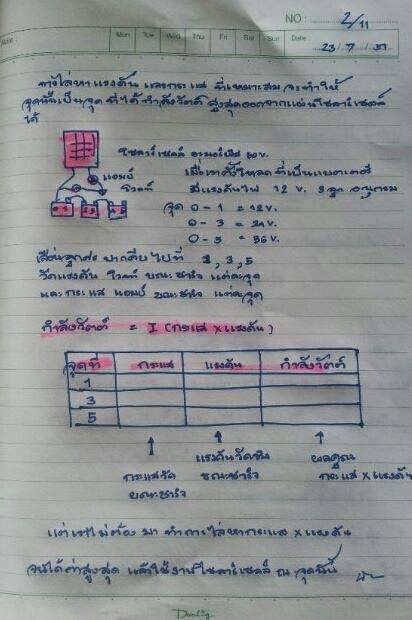 NO : 2/11
Mon Tue Wed Thu Fri Sat Sun Date
23/7/57
การไล่หาแรงดัน และกระแส ที่เหมาะสม จะทำให้
จุดนั้นเป็นจุด ที่ได้กำลังวัตต์ สูงสุดออกจากแผ่นโซลาร์เซลล์
ได้
โซลาร์เซลล์ 60 V.
แอมป์
โวลท์
เมื่อเราตั้งโหลดที่เป็นแบตเตอรี่
มีแรงดันไฟ 12 V. 3 ลูก อนุกรม
จุด 0 - 1 = 12 V.
0 - 3 = 24 V.
0 - 5 = 36 V.
เลื่อนลูกศร ปากคีบ ไปที่ 1, 3, 5
วัดแรงดัน โวลท์ ขณะชาร์จ แต่ละจุด
และ กระแส แอมป์ ขณะชาร์จ แต่ละจุด
กำลังวัตต์ = I (กระแส x แรงดัน)
จุดที่ กระแส แรงดัน กำลังวัตต์
1
3
5
กระแสวัด
ขณะชาร์จ
แรงดันวัด
ขณะชาร์จ
ผลคูณ
กระแส x แรงดัน
แต่เราไม่ต้อง มา ทำการไล่หากระแส x แรงดัน
จนได้ค่าสูงสุด แล้วใช้งานโซลาร์เซลล์ ณ จุดนั้น